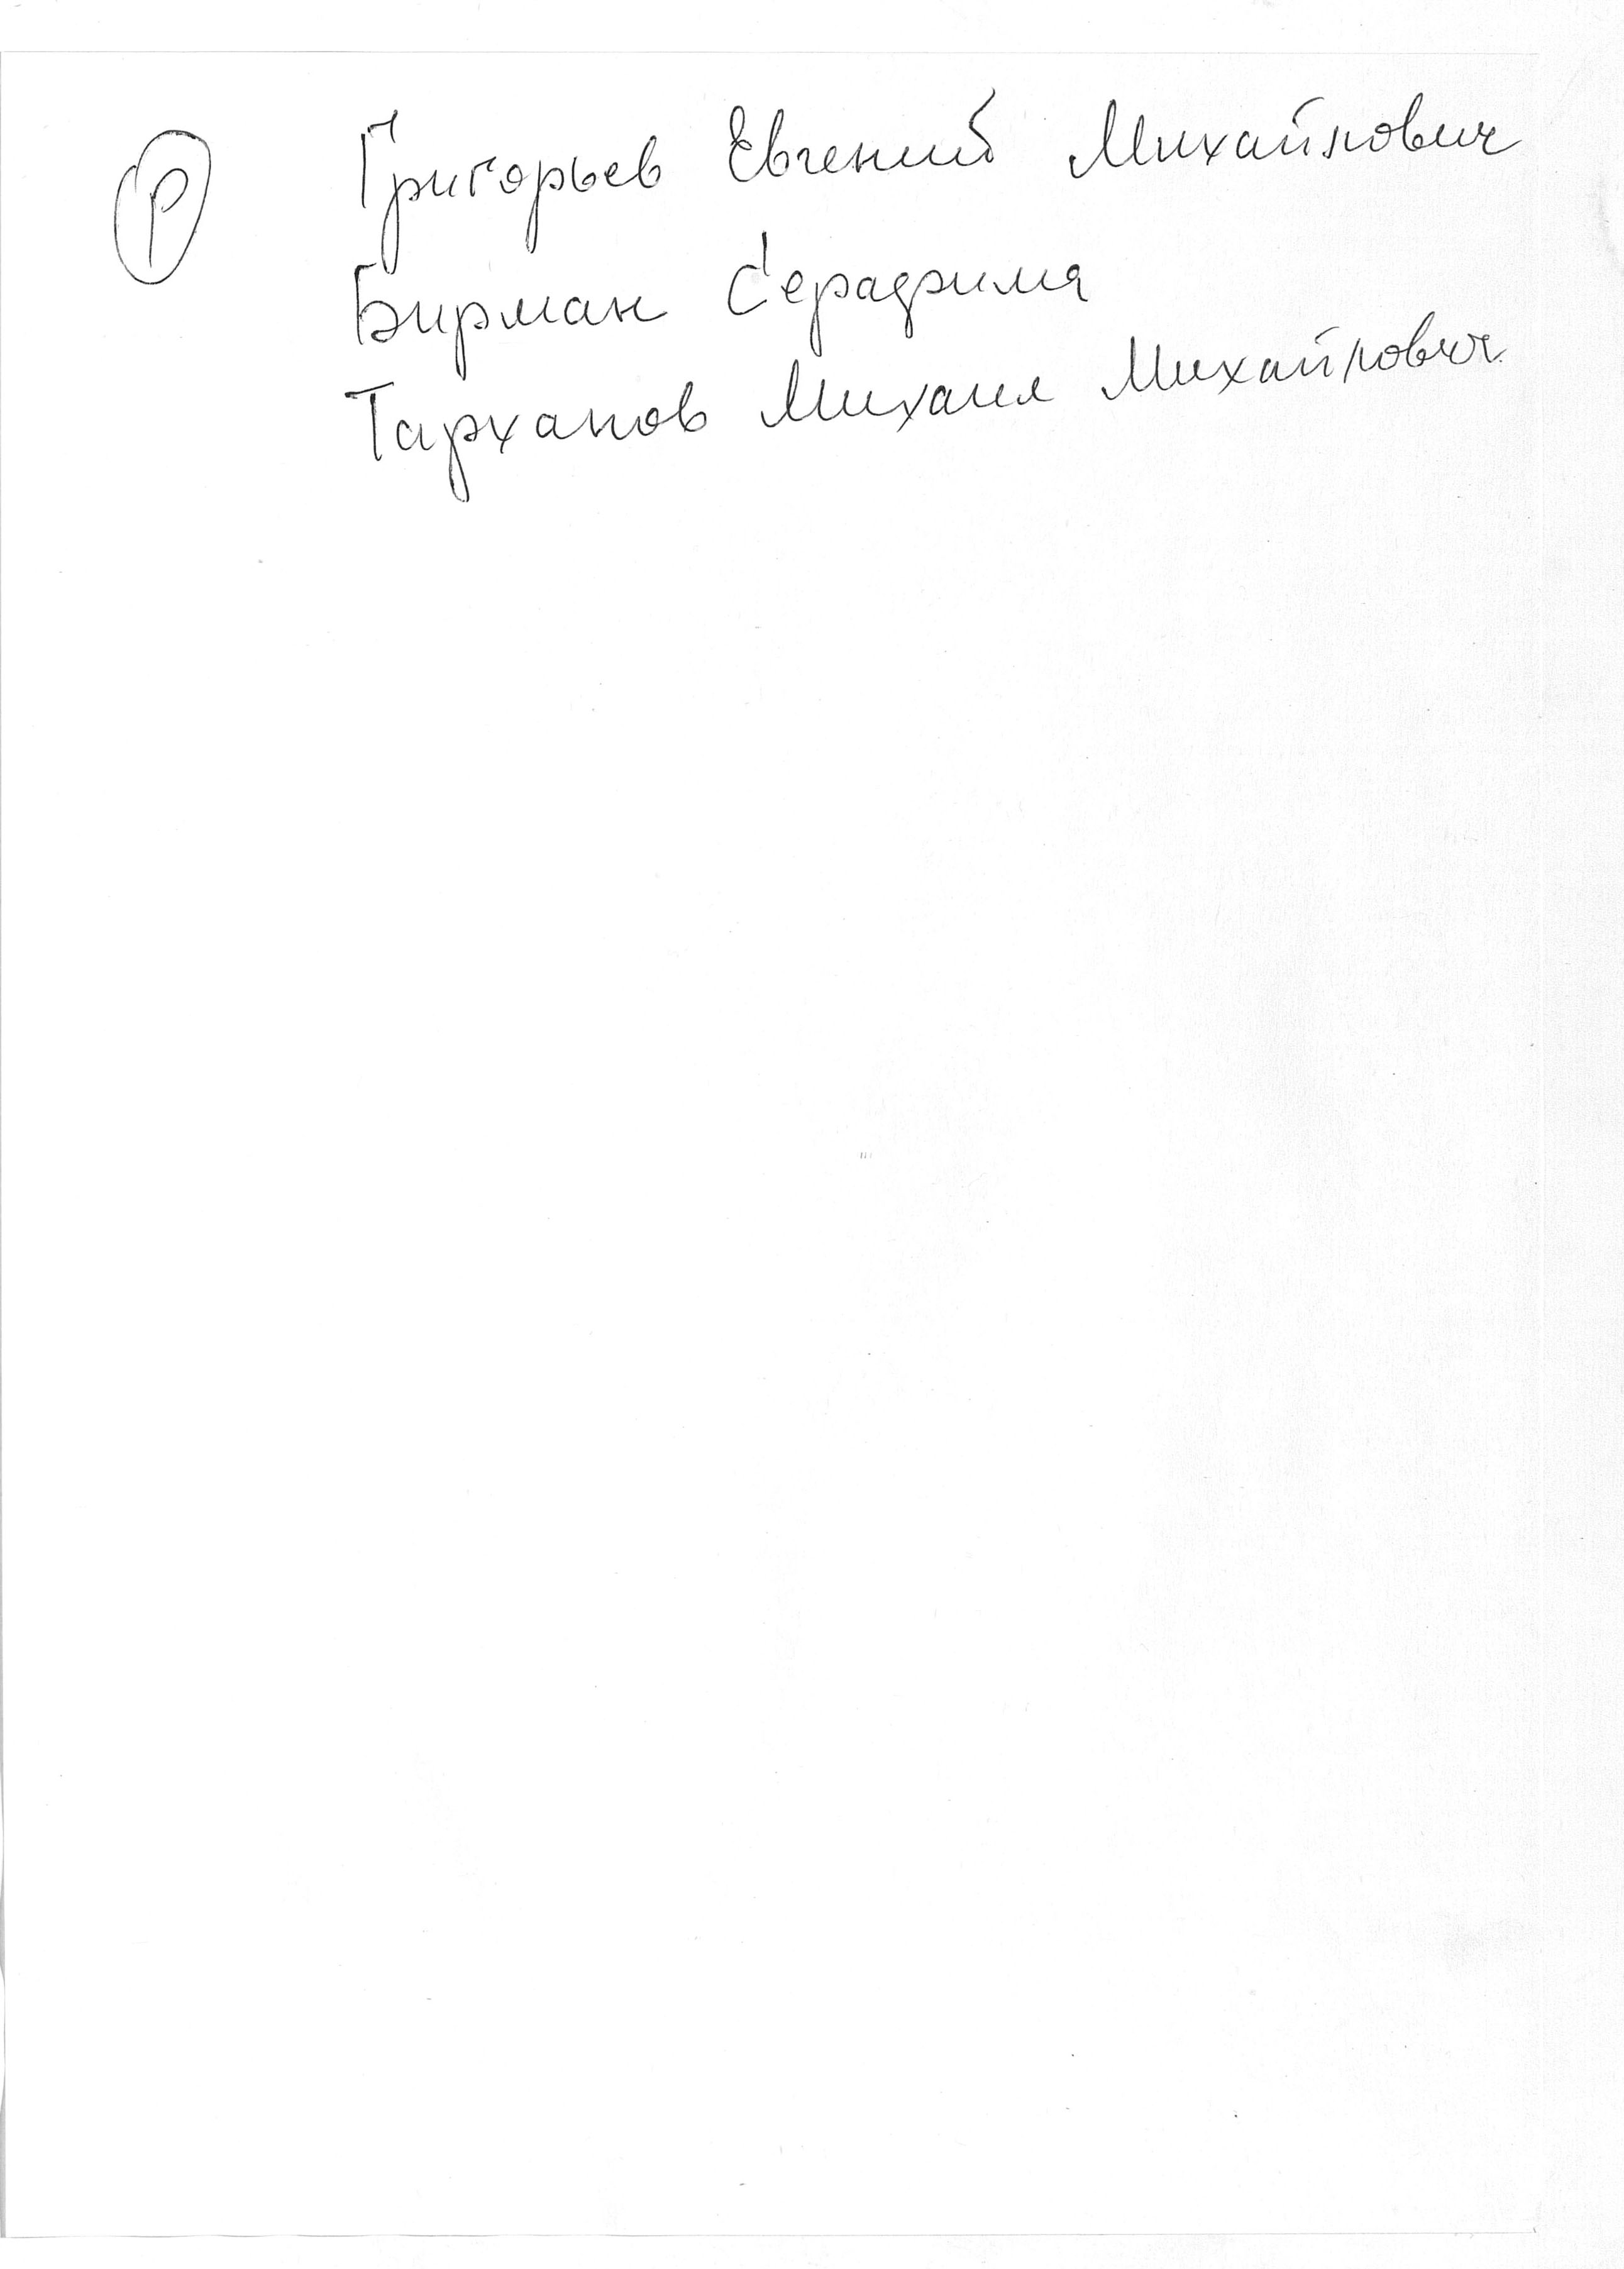 Р Григорьев Евгений Михайлович
Бирман Серафима
Тарханов Михаил Михайлович